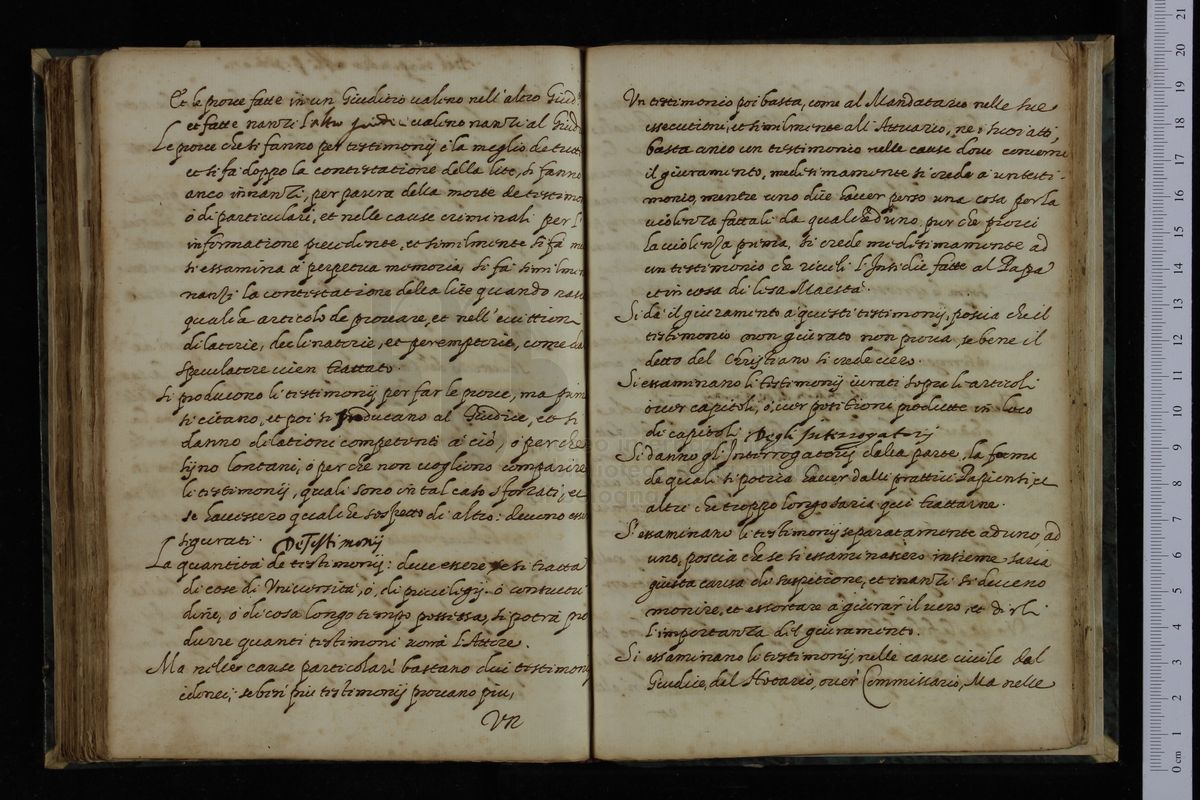 Et le prove fatte in un Giuditio valeno nell'altro Giud:
et fatte nanzi l'altro valeno nanzi al Giud
Le prove che si fanno per testimonij è la meglio de tutte
et si fà doppo la contestatione della lite, si fanno
anco innanzi, per paura della morte de testimo
ò di particulare, et nelle cause criminali per l'
informatione precedente, et similmente si fà
si essamina à perpetua memoria, si fà similme
nanzi la contestatione della lite quando nasc
qualch'articolo de provare, et nell'ecettioni
dilatorie, declinatorie, et peremptorie, come da
speculatore vien trattato.
Si producono li testimonij per far le prove, ma prim
si citano, et poi si producano al Giudice, et si
danno dilationi competenti à ciò, ò perche
sijno lontani, ò perche non vogliono comparire
li testimonij, quali sono in tal caso sforzati, et
se havessero qualche sospetto di altro: deveno esse
sigurati. De Testimonij
La quantità de testimonij: deve essere se si tratta
di cose di Università, ò, di privilegij ò consuetu
dine, ò di cosa longo tempo possessa, si potrà pro
durre quanti testimoni vorrà l'Attore.
Ma nelle cause particolari bastano dui testimoni
idonei, seben più testimonij provano più,
Un
Un testimonio poi basta, come al Mandatario nelle sue
essecutioni, et similmente all'Attuario, ne i suoi atti,
basta anco un testimonio nelle cause dove concerne
il giuramento, medesimamente si crede à un testi-
monio, mentre uno dice haver perso una cosa per la
violenza fattali da qualched'uno, pur che provi
la violenza prima, si crede medesimamente ad
un testimonio che riveli l'Insidie fatte al Pappa
et in cosa di lesa Maestà.
Si dà il giuramento à questi testimonij, poscia che il
testimonio non giurato non prova, se bene il
detto del Christiano si crede
Si essaminano li testimonij iurati sopra li articoli
over capitoli, ò, ver positioni produtte in loco
di capitoli. Degli Interrogatorij
Si danno gli Interrogatorij dalla parte, la forma
de quali si potria haver dalli prattici Sapienti, et
altri che troppo longo saria qui trattarne.
S'essaminano li testimonij separatamente ad uno, ad
uno, poscia che se si essaminassero insieme saria
giusta causa di suspetione, et inanzi si deveno
monire, et essortare à giurar il vero, et dirli
l'importanza del giuramento.
Si essaminano li testimonij nelle cause civile dal
Giudice, dal Notario, over Commissario, Ma nelle